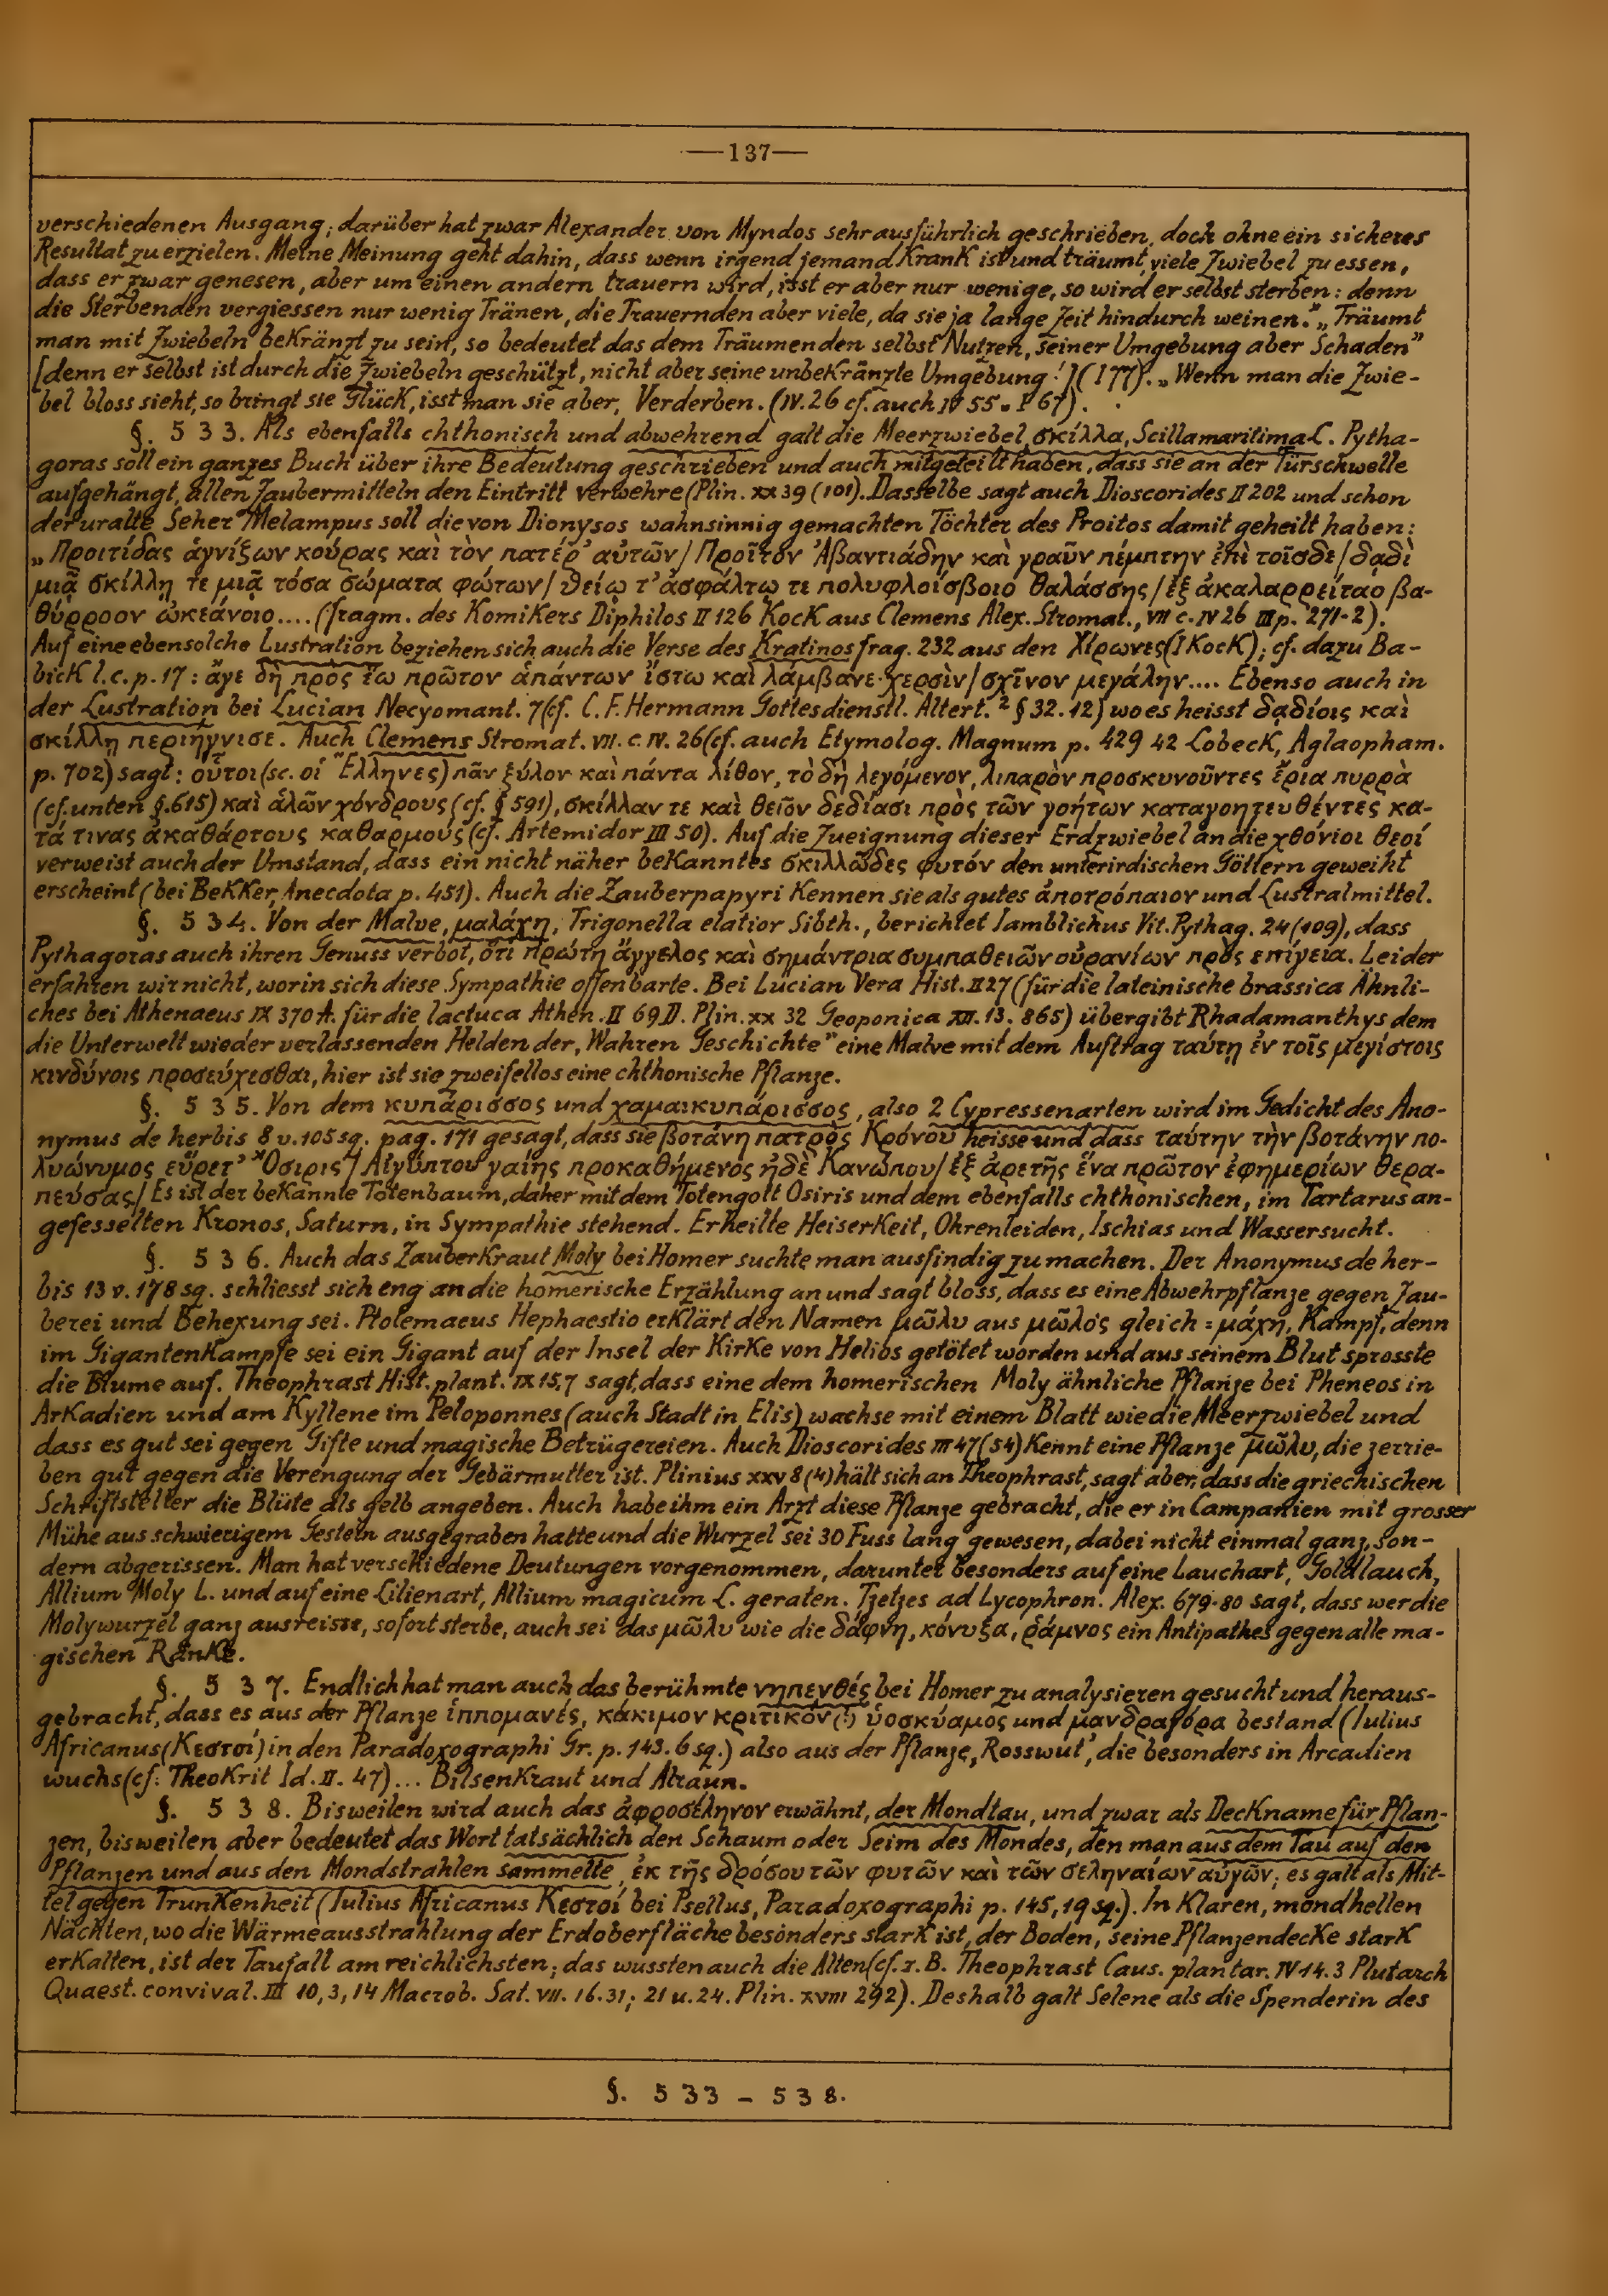 —137—
verschiedenen Ausgang; darüber hat zwar Alexander von Myndos sehr ausführlich geschrieben, doch ohne ein sicheres
Resultat zu erzielen. Meine Meinung geht dahin, dass wenn irgend jemand Krank ist und träumt, viele Zwiebel zu essen,
dass er zwar genesen, aber um einen andern trauern wird, isst er aber nur wenige, so wird er selbst sterben: denn
die Sterbenden vergiessen nur wenig Tränen, die Trauernden aber viele, da sie ja lange Zeit hindurch weinen." „Träumt
man mit Zwiebeln bekränzt zu sein, so bedeutet das dem Träumenden selbst Nutzen, seiner Umgebung aber Schaden"
[denn er selbst ist durch die Zwiebeln geschützt, nicht aber seine unbekränzte Umgebung!] (I 77). „Wenn man die Zwie-
bel bloss sieht, so bringt sie Glück, isst man sie aber, Verderben. (IV. 26 cf. auch IV 55 = I 67).
§. 533. Als ebenfalls chthonisch und abwehrend galt die Meerzwiebel, σκίλλα, Scilla maritima L. Pytha-
goras soll ein ganzes Buch über ihre Bedeutung geschrieben und auch mitgeteilt haben, dass sie an der Türschwelle
aufgehängt, allen Zaubermitteln den Eintritt verwehre (Plin. XX 39 (101). Dasselbe sagt auch Dioscorides II 202 und schon
der uralte Seher Melampus soll die von Dionysos wahnsinnig gemachten Töchter des Proitos damit geheilt haben:
„Προιτίδας ἁγνίξων κούρας καὶ τὸν πατέρ' αὐτῶν / Προῖτον Ἀβαντιάδην καὶ γραῦν πέμπτην ἐπὶ τοῖσδε / δᾳδὶ
μιᾷ σκίλλῃ τε μιᾷ τόσα σώματα φώτων / θείῳ τ' ἀσφάλτῳ τε πολυφλοίσβοιο θαλάσσης / ἐξ ἀκαλαρρείταο βα-
θύρροον ὠκεάνοιο.... (fragm. des Komikers Diphilos II 126 Kock aus Clemens Alex. Stromat., VII c. IV 26 III p. 271-2).
Auf eine ebensolche Lustration beziehen sich auch die Verse des Kratinos frag. 232 aus den Χίρωνες (I Kock); cf. dazu Ba-
bick l. c. p. 17: ἄγε δὴ πρὸς ἕω πρῶτον ἁπάντων ἵστω καὶ λάμβανε χερσὶν / σχῖνον μεγάλην.... Ebenso auch in
der Lustration bei Lucian Necyomant. 7 (cf. C. F. Hermann Gottesdienstl. Altert.² § 32. 12) wo es heisst δᾳδίοις καὶ
σκίλλῃ περιήγνισε. Auch Clemens Stromat. VII. c. IV. 26 (cf. auch Etymolog. Magnum p. 429 42 Lobeck, Aglaopham.
p. 702) sagt: οὗτοι (sc. οἱ Ἕλληνες) πᾶν ξύλον καὶ πάντα λίθον, τὸ δὴ λεγόμενον, λιπαρὸν προσκυνοῦντες ἔρια πυρρὰ
(cf. unten §. 615) καὶ ἁλῶν χόνδρους (cf. § 591), σκίλλαν τε καὶ θεῖον δεδίασι πρὸς τῶν γοήτων καταγοητευθέντες κα-
τά τινας ἀκαθάρτους καθαρμούς (cf. Artemidor III 50). Auf die Zueignung dieser Erdzwiebel an die χθόνιοι θεοί
verweist auch der Umstand, dass ein nicht näher bekanntes σκιλλῶδες φυτόν den unterirdischen Göttern geweiht
erscheint (bei Bekker, Anecdota p. 451). Auch die Zauberpapyri Kennen sie als gutes ἀποτρόπαιον und Lustralmittel.
§. 534. Von der Malve, μαλάχη, Trigonella elatior Sibth., berichtet Iamblichus Vit. Pythag. 24 (109), dass
Pythagoras auch ihren Genuss verbot, ὅτι πρώτη ἄγγελος καὶ σημάντρια συμπαθειῶν οὐρανίων πρὸς επίγεια. Leider
erfahren wir nicht, worin sich diese Sympathie offenbarte. Bei Lucian Vera Hist. II 27 (für die lateinische brassica Ähnli-
ches bei Athenaeus IX 370 A. für die lactuca Athen. II 69 D. Plin. XX 32 Geoponica XII. 13. 865) übergibt Rhadamanthys dem
die Unterwelt wieder verlassenden Helden der „Wahren Geschichte" eine Malve mit dem Auftrag ταύτῃ ἐν τοῖς μεγίστοις
κινδύνοις προσεύχεσθαι, hier ist sie zweifellos eine chthonische Pflanze.
§. 535. Von dem κυπάρισσος und χαμαικυπάρισσος, also 2 Cypressenarten wird im Gedicht des Ano-
nymus de herbis 8 v. 105 sq. pag. 171 gesagt, dass sie βοτάνη πατρὸς Κρόνου heisse und dass ταύτην τὴν βοτάνην πο-
λυώνυμος εὕρετ' Ὄσιρις / Αἰγύπτου γαίης προκαθήμενος ἠδὲ Κανώπου / ἐξ ἀρετῆς ἕνα πρῶτον ἐφημερίων θερα-
πεύσας / Es ist der bekannte Totenbaum, daher mit dem Totengott Osiris und dem ebenfalls chthonischen, im Tartarus an-
gefesselten Kronos, Saturn, in Sympathie stehend. Er heilte Heiserkeit, Ohrenleiden, Ischias und Wassersucht.
§. 536. Auch das Zauberkraut Moly bei Homer suchte man ausfindig zu machen. Der Anonymus de her-
bis 13 v. 178 sq. schliesst sich eng an die homerische Erzählung an und sagt bloss, dass es eine Abwehrpflanze gegen Zau-
berei und Behexung sei. Ptolemaeus Hephaestio erklärt den Namen μῶλυ aus μῶλος gleich = μάχη, Kampf, denn
im Gigantenkampfe sei ein Gigant auf der Insel der Kirke von Helios getötet worden und aus seinem Blut sprosste
die Blume auf. Theophrast Hist. plant. IX 15,7 sagt, dass eine dem homerischen Moly ähnliche Pflanze bei Pheneos in
Arkadien und am Kyllene im Peloponnes (auch Stadt in Elis) wachse mit einem Blatt wie die Meerzwiebel und
dass es gut sei gegen Gifte und magische Betrügereien. Auch Dioscorides III 47 (54) Kennt eine Pflanze μῶλυ, die zerrie-
ben gut gegen die Verengung der Gebärmutter ist. Plinius XXV 8 (4) hält sich an Theophrast, sagt aber, dass die griechischen
Schriftsteller die Blüte als gelb angeben. Auch habe ihm ein Arzt diese Pflanze gebracht, die er in Campanien mit grosser
Mühe aus schwierigem Gestein ausgegraben hatte und die Wurzel sei 30 Fuss lang gewesen, dabei nicht einmal ganz, son-
dern abgerissen. Man hat verschiedene Deutungen vorgenommen, darunter besonders auf eine Lauchart, Goldlauch,
Allium Moly L. und auf eine Lilienart, Allium magicum L. geraten. Tzetzes ad Lycophron. Alex. 679-80 sagt, dass wer die
Molywurzel ganz ausreisse, sofort sterbe, auch sei das μῶλυ wie die δάφνη, κόνυξα, ῥάμνος ein Antipathes gegen alle ma-
gischen Ränke.
§. 537. Endlich hat man auch das berühmte νηπενθές bei Homer zu analysieren gesucht und heraus-
gebracht, dass es aus der Pflanze ἱππομανές, κάκιμον κριτικόν (!) ὑοσκύαμος und μανδραγόρα bestand (Iulius
Africanus (Κεστοί) in den Paradoxographi Gr. p. 143. 6 sq.) also aus der Pflanze „Rosswut', die besonders in Arcadien
wuchs (cf. Theokrit Id. II. 47)... Bilsenkraut und Alraun.
§. 538. Bisweilen wird auch das ἀφροσέληνον erwähnt, der Mondtau, und zwar als Deckname für Pflan-
zen, bisweilen aber bedeutet das Wort tatsächlich den Schaum oder Seim des Mondes, den man aus dem Tau auf den
Pflanzen und aus den Mondstrahlen sammelte, ἐκ τῆς δρόσου τῶν φυτῶν καὶ τῶν σεληναίων αὐγῶν; es galt als Mit-
tel gegen Trunkenheit (Iulius Africanus Κεστοί bei Psellus, Paradoxographi p. 145, 19 sq.). In Klaren, mondhellen
Nächten, wo die Wärmeausstrahlung der Erdoberfläche besonders stark ist, der Boden, seine Pflanzendecke stark
erkalten, ist der Taufall am reichlichsten; das wussten auch die Alten (cf. z. B. Theophrast Caus. plantar. IV 14. 3 Plutarch
Quaest. convival. III 10, 3, 14 Macrob. Sat. VII. 16. 31; 21 u. 24. Plin. XVIII 292). Deshalb galt Selene als die Spenderin des
§. 533 – 538.